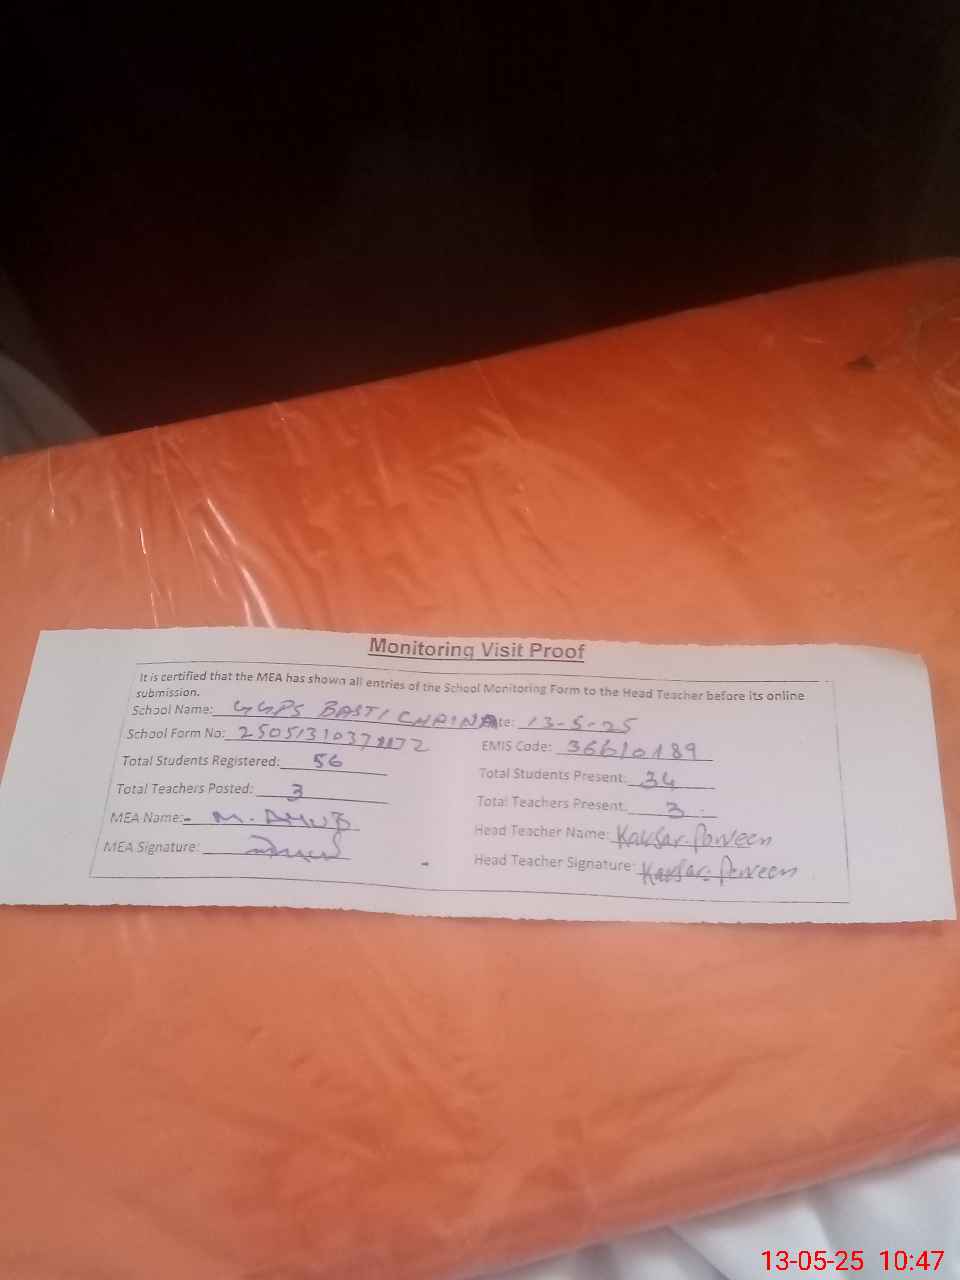 Monitoring Visit Proof
It is certified that the MEA has shown all entries of the School Monitoring Form to the Head Teacher before its online
submission.
School Name: GGPS BASTI CHAINA Date: 13-5-25
School Form No: EMIS Code: 36610189
Total Students Registered: 56 Total Students Present: 34
Total Teachers Posted: 3 Total Teachers Present: 3
MEA Name: M. Head Teacher Name: Kausar Parveen
MEA Signature: Head Teacher Signature: Kausar Parveen
13-05-25 10:47